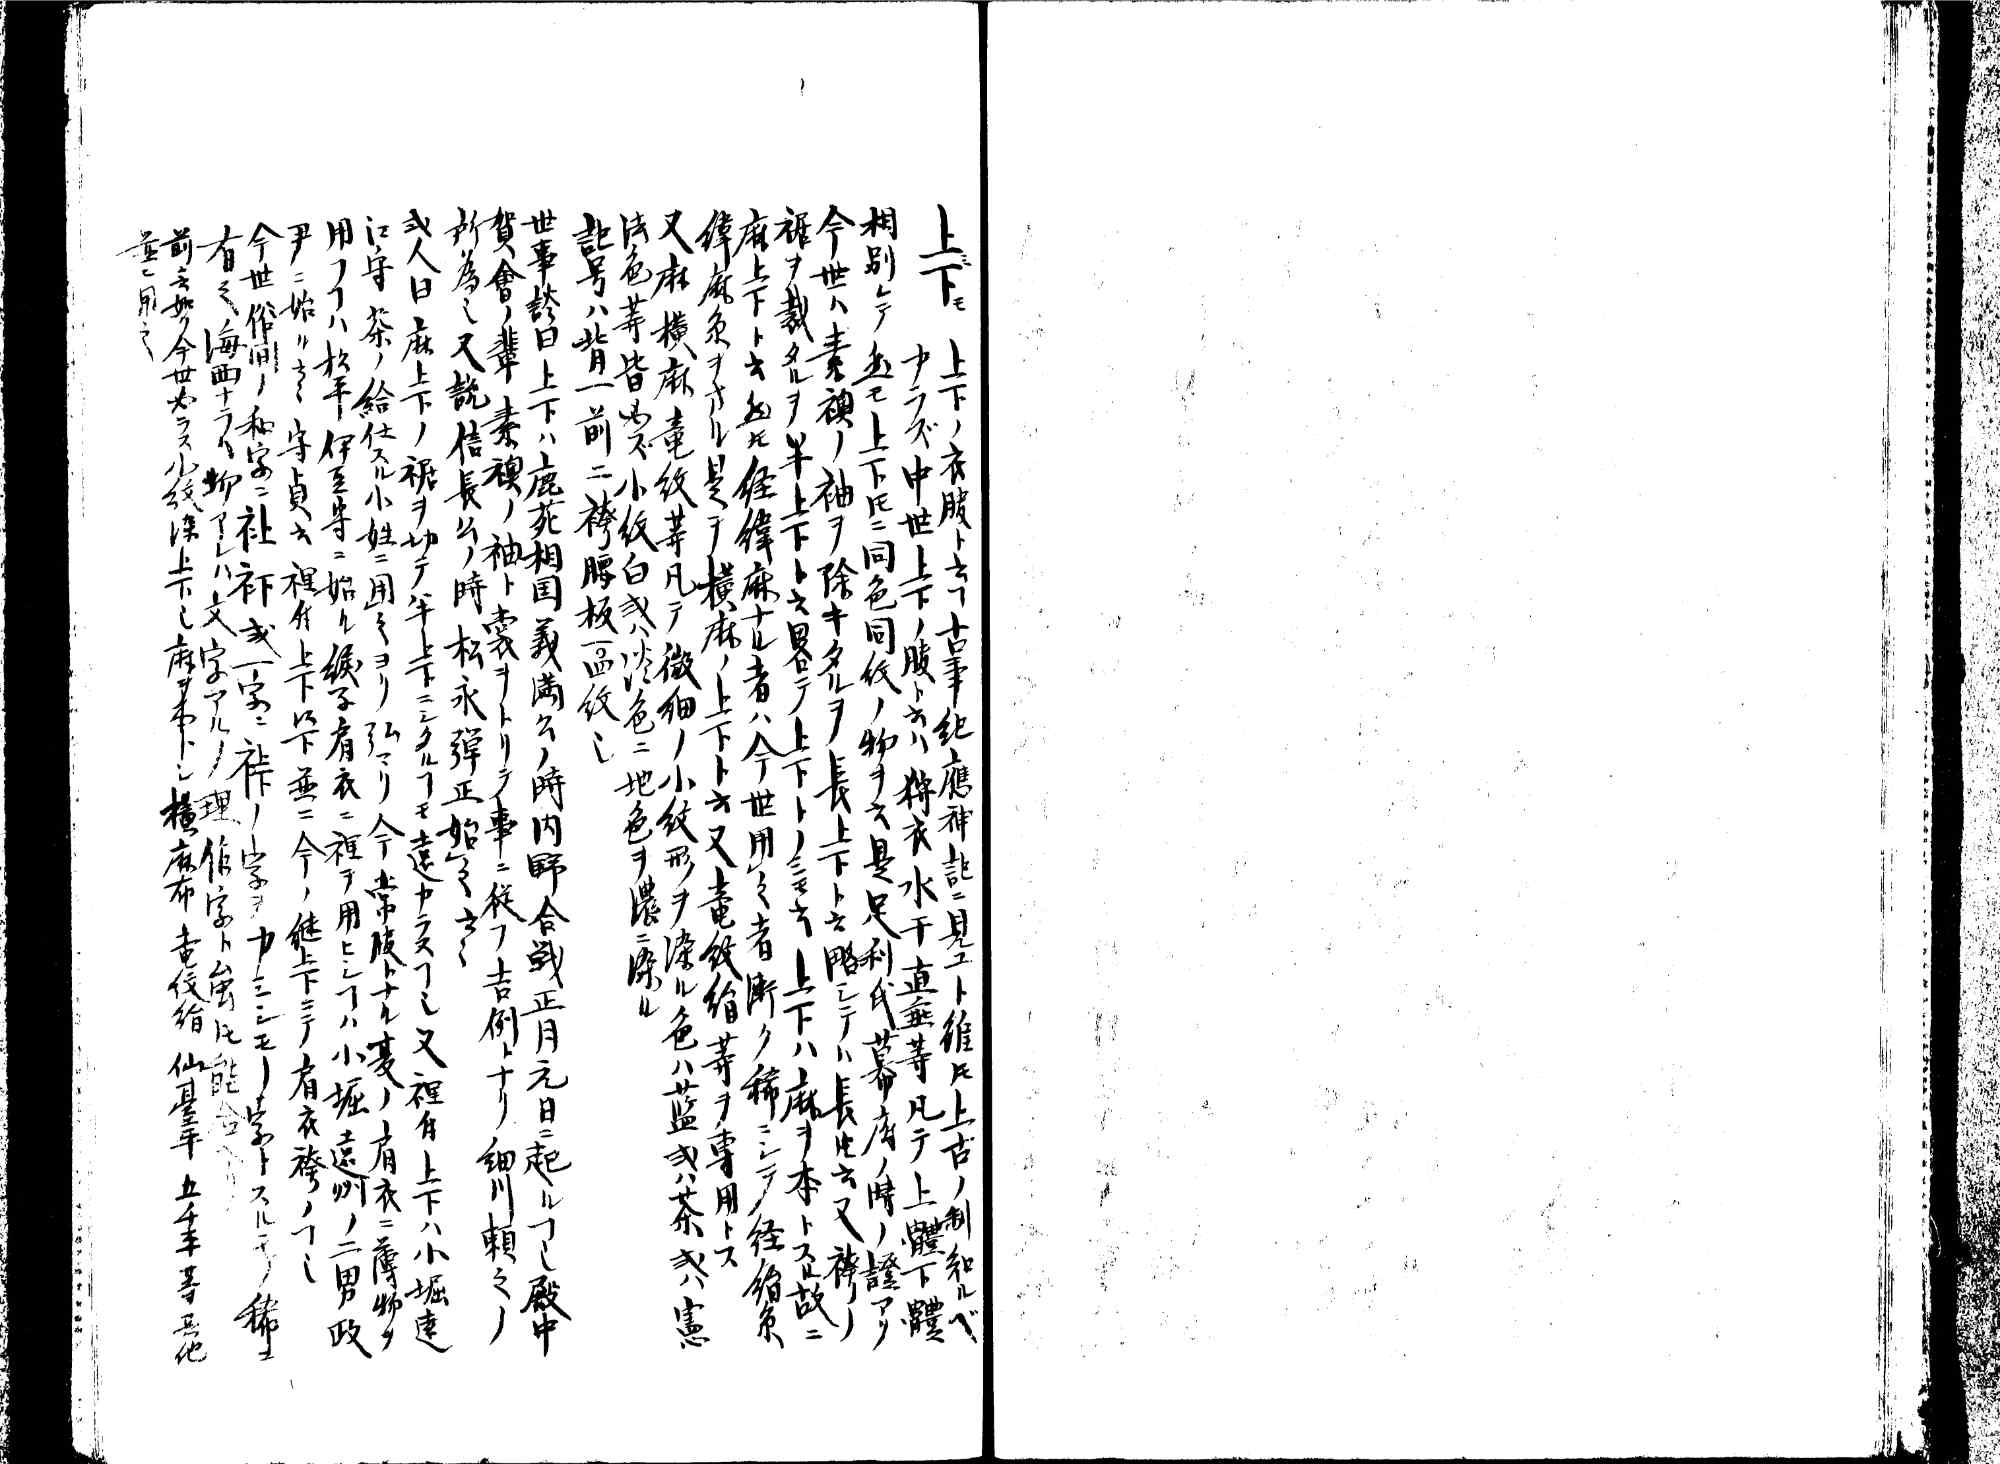 上下 上下ノ衣服ト云フ古事紀應神記ニ見ユト雖ㇳモ上古ノ制知ルベ
カラズ中世上下ノ服ト云ハ狩衣水干直垂等凡テ上體下體
相別レテ然モ上下ㇳモニ同色同紋ノ物ヲ云是足利氏幕府ノ時ノ證アリ
今世ハ素襖ノ袖ヲ除キタルヲ長上下ト云略シテハ長ㇳモ云又袴ノ
裾ヲ裁タルヲ半上下ト云畧シテ上下トノミモ云上下ハ麻ヲ本トスル故ニ
麻上下ト云然ㇳモ経緯麻ナル者ハ今世用フル者漸ク稀ニシテ経絹糸
緯麻糸ヲ是ヲ横麻ノ上下ト云又竜紋絹等ヲ専用トス
又麻横麻竜紋等凡テ微細ノ小紋形ヲ染ル色ハ藍或ハ茶或ハ憲
法色等皆必ズ小紋白或ハ淡色ニ地色ヲ濃ニ染ル
記号ハ背一前二袴腰板一区紋也
世事談曰上下ハ鹿苑相国義満公ノ時内野合戦正月元日ニ起ルヿ也殿中
賀會ノ輩素襖ノ袖ト裏ヲトリテ事ニ従フ吉例トナリ細川頼之ノ
所為也又説信長公ノ時松永弾正始ム云々
或人曰麻上下ノ裾ヲ切テ半上下ニシタルヿモ遠カラヌヿ也又裡付上下ハ小堀遠
江守茶ノ給仕スル小姓ニ用ヒシヨリ弘マリ今常服トナル夏ノ肩衣ニ薄物ヲ
用フヿハ松平伊豆守ニ始ル継子肩衣ニ裡ヲ用ヒシヿハ小堀遠州ノ二男政
尹ニ始ル云々守貞云裡付上下以下並ニ今ノ継上下ニテ肩衣袴ノヿ也
今世俗間ノ和字ニ䘵裃或一字ニ裃ノ字ヲカミシモノ字トスルモノ稀ニ
有之海西ナラハ物アレハ文字アルノ理作字ト雖ㇳモ能合ヘリ
前云如ク今世必ラス小紋染上下也麻ヲ本トシ横麻布竜紋絹仙臺平五千平等其他
並ニ用之